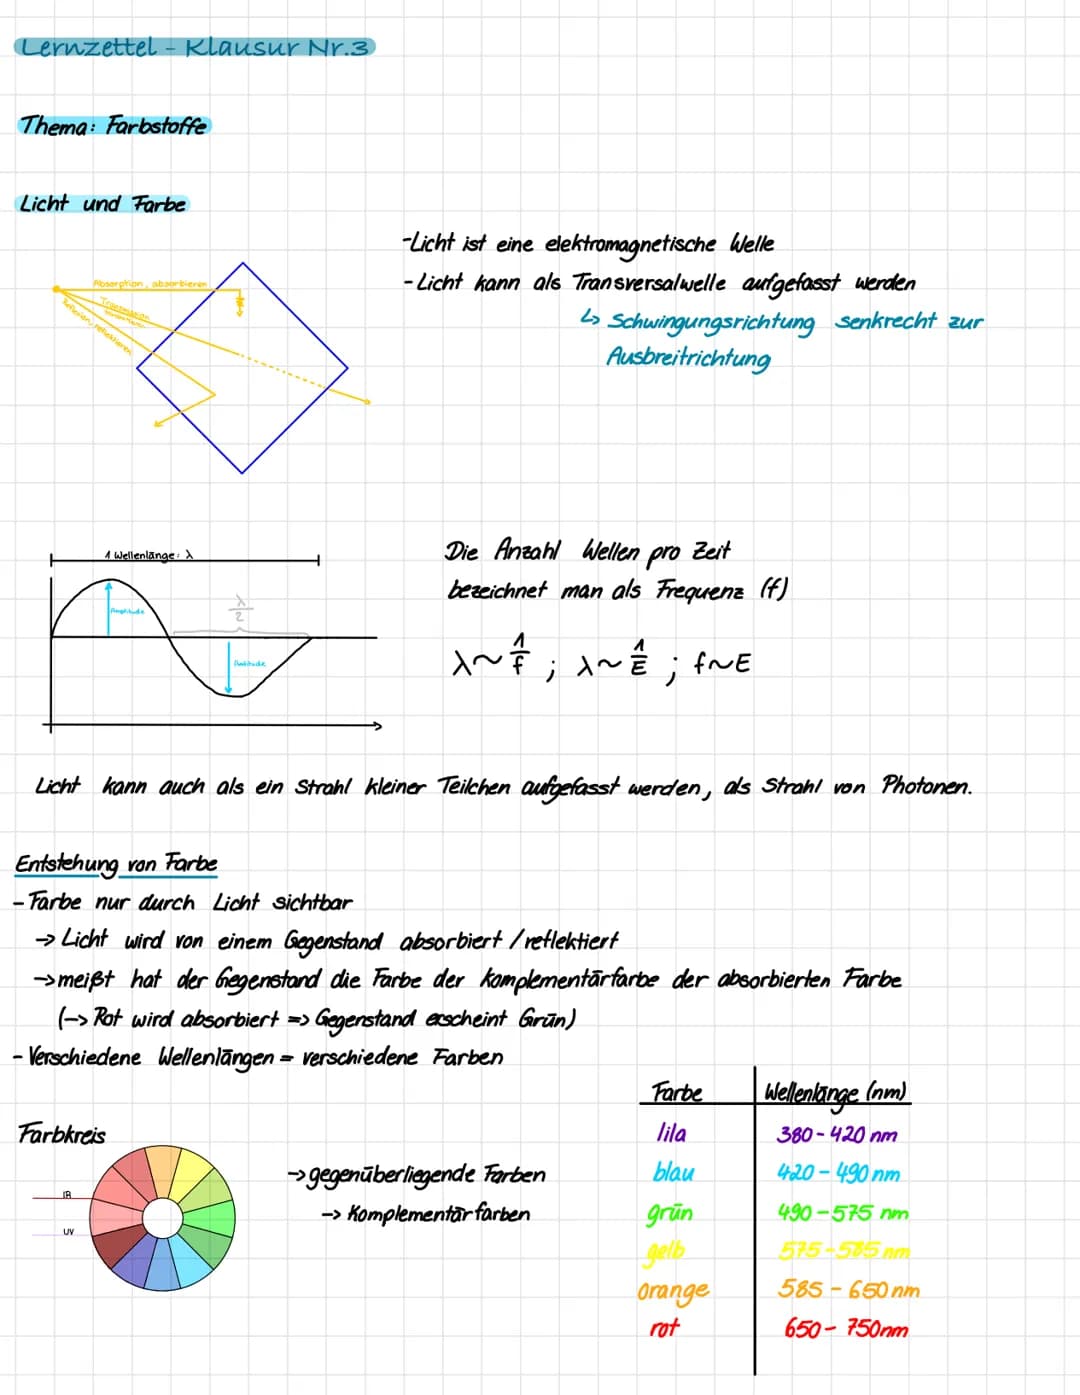 Lernzettel - Klausur Nr.3
Thema: Farbstoffe
Licht und Farbe
-Licht ist eine elektromagnetische Welle
- Licht kann als Transversalwelle aufgefasst werden
↳ Schwingungsrichtung senkrecht zur
Ausbreitrichtung
Absorption, absorbieren
Transmission
Reflexion, reflektieren
1 Wellenlänge: λ
Amplitude
λ/2
Die Anzahl Wellen pro Zeit
bezeichnet man als Frequenz (f)
λ~1/f ; λ~1/E ; f~E
Licht kann auch als ein Strahl kleiner Teilchen aufgefasst werden, als Strahl von Photonen.
Entstehung von Farbe
- Farbe nur durch Licht sichtbar
-> Licht wird von einem Gegenstand absorbiert / reflektiert
-> meißt hat der Gegenstand die Farbe der Komplementärfarbe der absorbierten Farbe
(-> Rot wird absorbiert => Gegenstand erscheint Grün)
- Verschiedene Wellenlängen = verschiedene Farben
Farbkreis
IR
UV
-> gegenüberliegende Farben
-> Komplementärfarben
Farbe Wellenlänge (nm)
lila 380-420 nm
blau 420-490 nm
grün 490-575 nm
gelb 575-585 nm
orange 585-650 nm
rot 650-750nm